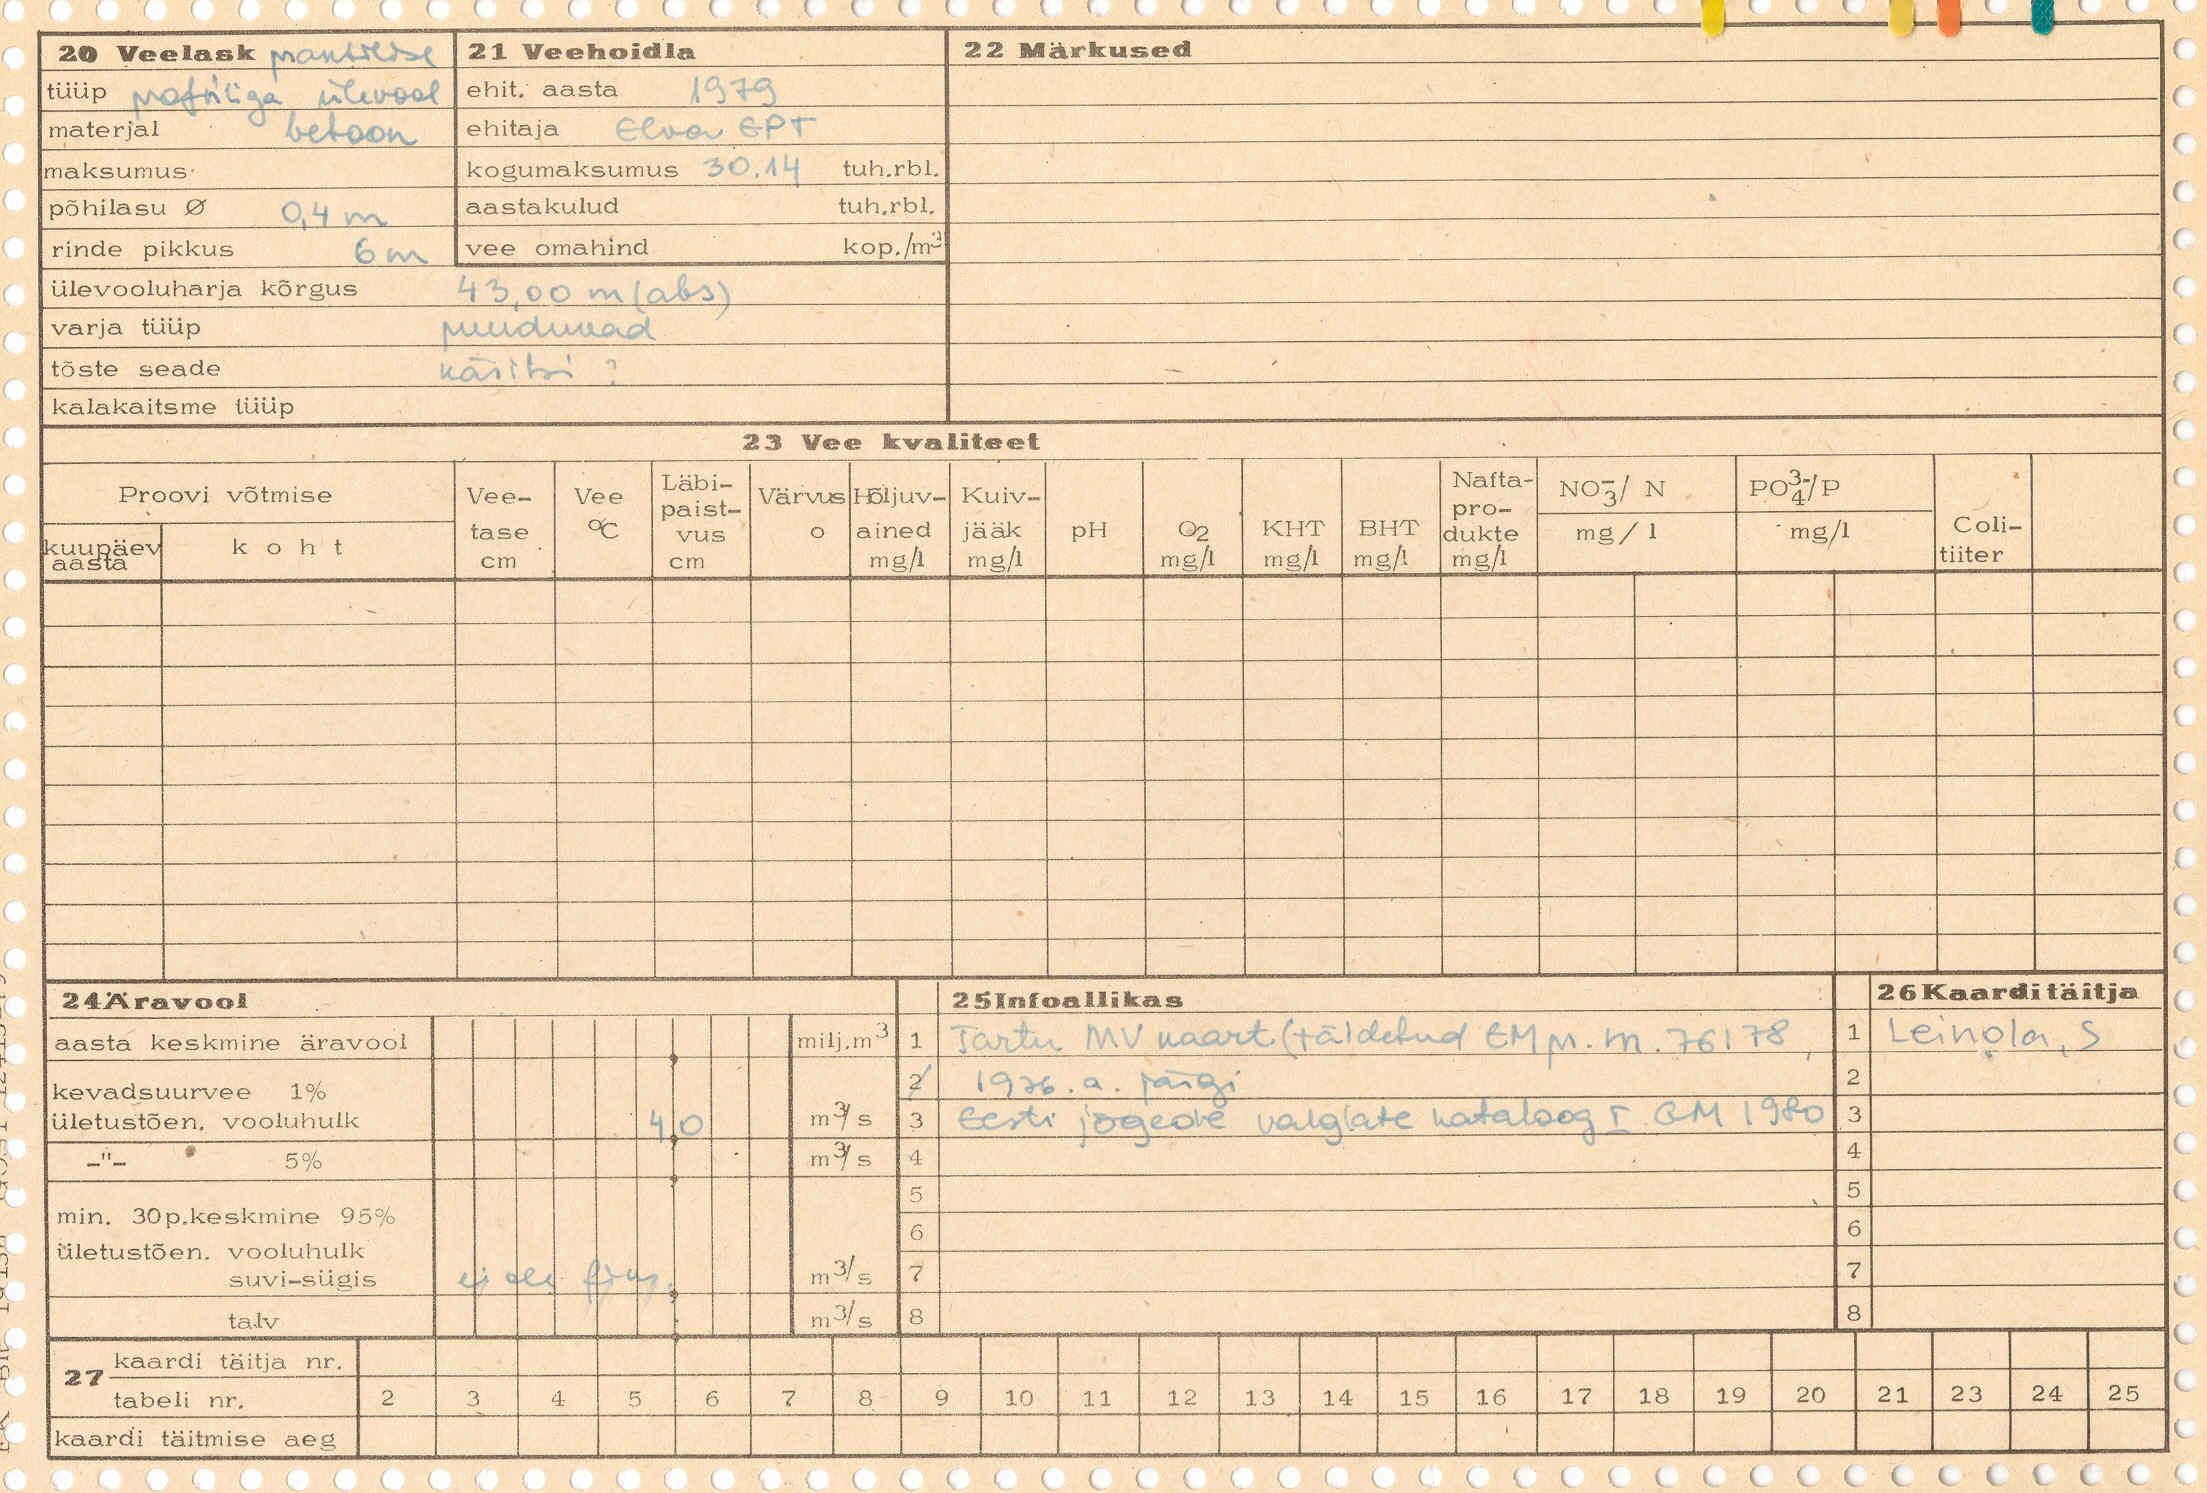 20 Veelask praktilise
tüüp profiiliga ülevool
materjal betoon
maksumus
põhilasu Ø 0,4 m
rinde pikkus 6 m
21 Veehoidla
ehit. aasta 1979
ehitaja Elva EPT
kogumaksumus 30.14 tuh.rbl.
aastakulud tuh.rbl.
vee omahind kop./m3
ülevooluharja kõrgus 43,00 m (abs)
varja tüüp puuduvad
tõste seade käsitsi ?
kalakaitsme tüüp
22 Märkused
23 Vee kvaliteet
Proovi võtmise
kuupäev
aasta
koht
Vee-
tase
cm
Vee
°C
Läbi-
paist-
vus
cm
Värvus
o
Hõljuv-
ained
mg/l
Kuiv-
jääk
mg/l
pH
O2
mg/l
KHT
mg/l
BHT
mg/l
Nafta-
pro-
dukte
mg/l
NO3-/ N
mg/l
PO4 3-/P
mg/l
Coli-
tiiter
24 Äravool
aasta keskmine äravool milj.m3
kevadsuurvee 1%
ületustõen. vooluhulk 40 m3/s
-"- 5% m3/s
min. 30p.keskmine 95%
ületustõen. vooluhulk
suvi-sügis ei ole m3/s
talv m3/s
25 Infoallikas
1 Tartu MV kaart (täidetud EM p. m. 76178,
2 1976. a. järgi
3 Eesti jõgede valglate kataloog I EM 1980
4
5
6
7
8
26 Kaardi täitja
1 Leinola, S
2
3
4
5
6
7
8
27 kaardi täitja nr.
tabeli nr. 2 3 4 5 6 7 8 9 10 11 12 13 14 15 16 17 18 19 20 21 23 24 25
kaardi täitmise aeg